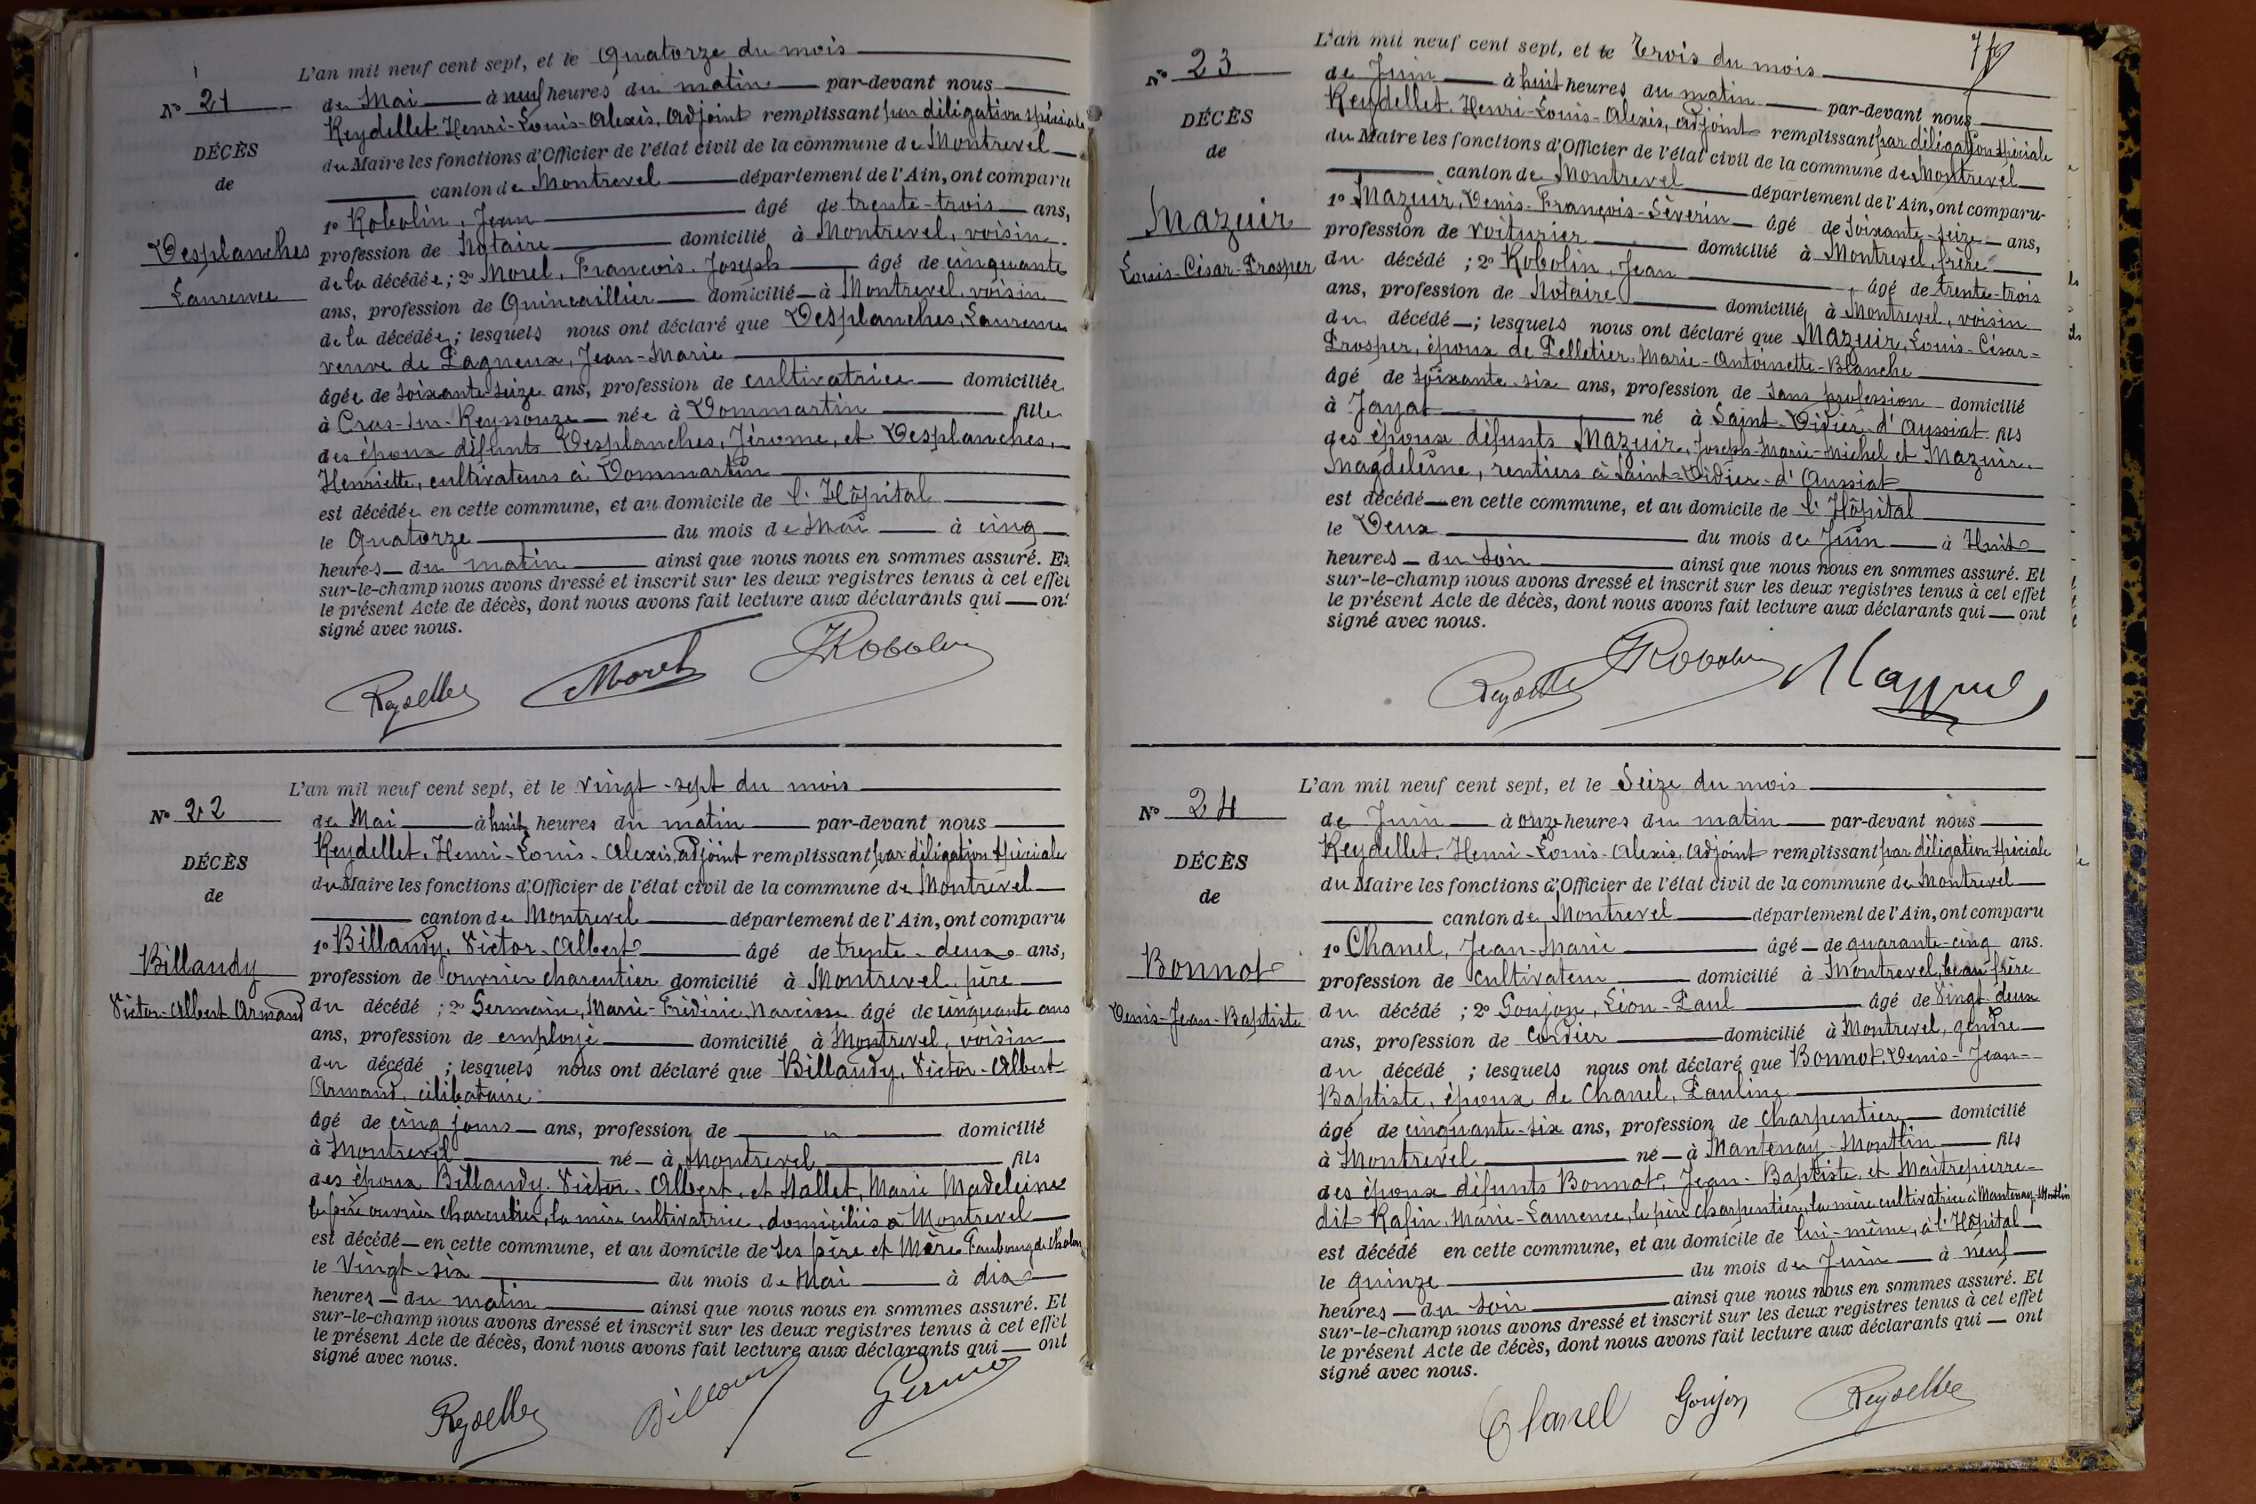 L'an mil neuf cent sept, et le Quatorze du mois
No 21
de Mai à neuf heures du matin par-devant nous
Reydellet, Henri-Louis-Alexis, Adjoint remplissant par délégation spéciale
DÉCÈS
du Maire les fonctions d'Officier de l'état civil de la commune de Montrevel
de
canton de Montrevel département de l'Ain, ont comparu
1o Robolin, Jean âgé de trente-trois ans,
Desplanches
profession de Notaire domicilié à Montrevel, voisin
Laurence
de la décédée; 2o Morel, François-Joseph âgé de cinquante
ans, profession de Quincaillier domicilié à Montrevel, voisin
de la décédée; lesquels nous ont déclaré que Desplanches, Laurence
veuve de Pagneux, Jean-Marie
âgée de soixante-seize ans, profession de cultivatrice domiciliée
à Cras-sur-Reyssouze née à Dommartin fille
des époux défunts Desplanches, Jérome, et Desplanches,
Henriette, cultivateurs à Dommartin
est décédée en cette commune, et au domicile de l'Hôpital
le Quatorze du mois de Mai à cinq
heures du matin ainsi que nous nous en sommes assuré. Et
sur-le-champ nous avons dressé et inscrit sur les deux registres tenus à cet effet
le présent Acte de décès, dont nous avons fait lecture aux déclarants qui ont
signé avec nous.
Reydellet Morel JRobolin
L'an mil neuf cent sept, et le vingt-sept du mois
No 22
de Mai à huit heures du matin par-devant nous
Reydellet, Henri-Louis-Alexis, adjoint remplissant par délégation spéciale
DÉCÈS
du Maire les fonctions d'Officier de l'état civil de la commune de Montrevel
de
canton de Montrevel département de l'Ain, ont comparu
1o Billaudy, Victor-Albert âgé de trente-deux ans,
Billaudy
profession de ouvrier charentier domicilié à Montrevel, père
Victor-Albert Armand
du décédé; 2o Germain, Marie-Frédéric, Narcisse âgé de cinquante ans
ans, profession de employé domicilié à Montrevel, voisin
du décédé; lesquels nous ont déclaré que Billaudy, Victor-Albert-
Armand, célibataire
âgé de cinq jours ans, profession de " domicilié
à Montrevel né à Montrevel fils
des époux Billaudy, Victor-Albert, et Hallet, Marie Madeleine
le père ouvrier charcutier, la mère cultivatrice, domiciliés à Montrevel
est décédé en cette commune, et au domicile de Ses père et Mère Faubourg de Chalon
le Vingt-six du mois de Mai à dix
heures du matin ainsi que nous nous en sommes assuré. Et
sur-le-champ nous avons dressé et inscrit sur les deux registres tenus à cet effet
le présent Acte de décès, dont nous avons fait lecture aux déclarants qui ont
signé avec nous.
Reydellet Billaudy Germain
L'an mil neuf cent sept, et le Trois du mois
No 23
de Juin à huit heures du matin par-devant nous
Reydellet, Henri-Louis-Alexis, adjoint remplissant par délégation spéciale
DÉCÈS
du Maire les fonctions d'Officier de l'état civil de la commune de Montrevel
de
canton de Montrevel département de l'Ain, ont comparu
1o Mazuir, Denis-François-Séverin âgé de Soixante-seize ans,
Mazuir
profession de voiturier domicilié à Montrevel, frère
Louis-César-Prosper
du décédé; 2o Robolin, Jean âgé de trente-trois
ans, profession de Notaire domicilié à Montrevel, voisin
du décédé; lesquels nous ont déclaré que Mazuir, Louis-César-
Prosper, époux de Pelletier, Marie-Antoinette-Blanche
âgé de soixante-six ans, profession de sans profession domicilié
à Jayat né à Saint-Didier-d'Aussiat fils
des époux défunts Mazuir, Joseph-Marie-Michel et Mazuir,
Magdeleine, rentiers à Saint-Didier-d'Aussiat
est décédé en cette commune, et au domicile de l'Hôpital
le Deux du mois de Juin à Huit
heures du soir ainsi que nous nous en sommes assuré. Et
sur-le-champ nous avons dressé et inscrit sur les deux registres tenus à cet effet
le présent Acte de décès, dont nous avons fait lecture aux déclarants qui ont
signé avec nous.
Reydellet JRobolin Mazuir
L'an mil neuf cent sept, et le Seize du mois
No 24
de Juin à onze heures du matin par-devant nous
Reydellet, Henri-Louis-Alexis, Adjoint remplissant par délégation spéciale
DÉCÈS
du Maire les fonctions d'Officier de l'état civil de la commune de Montrevel
de
canton de Montrevel département de l'Ain, ont comparu
1o Chanel, Jean-Marie âgé de quarante-cinq ans.
Bonnot
profession de cultivateur domicilié à Montrevel, beau-frère
Denis-Jean-Baptiste
du décédé; 2o Goujon, Léon-Paul âgé de Vingt-deux
ans, profession de Cordier domicilié à Montrevel, gendre
du décédé; lesquels nous ont déclaré que Bonnot, Denis-Jean-
Baptiste, époux de Chanel, Pauline
âgé de cinquante-six ans, profession de charpentier domicilié
à Montrevel né à Mantenay-Montlin fils
des époux défunts Bonnot, Jean-Baptiste, et Maitrepierre-
dit Rafin, Marie-Laurence, le père charpentier, la mère cultivatrice à Mantenay-Montlin
est décédé en cette commune, et au domicile de lui-même, à l'Hôpital
le quinze du mois de Juin à neuf
heures du soir ainsi que nous nous en sommes assuré. Et
sur-le-champ nous avons dressé et inscrit sur les deux registres tenus à cet effet
le présent Acte de décès, dont nous avons fait lecture aux déclarants qui ont
signé avec nous.
Chanel Goujon Reydellet